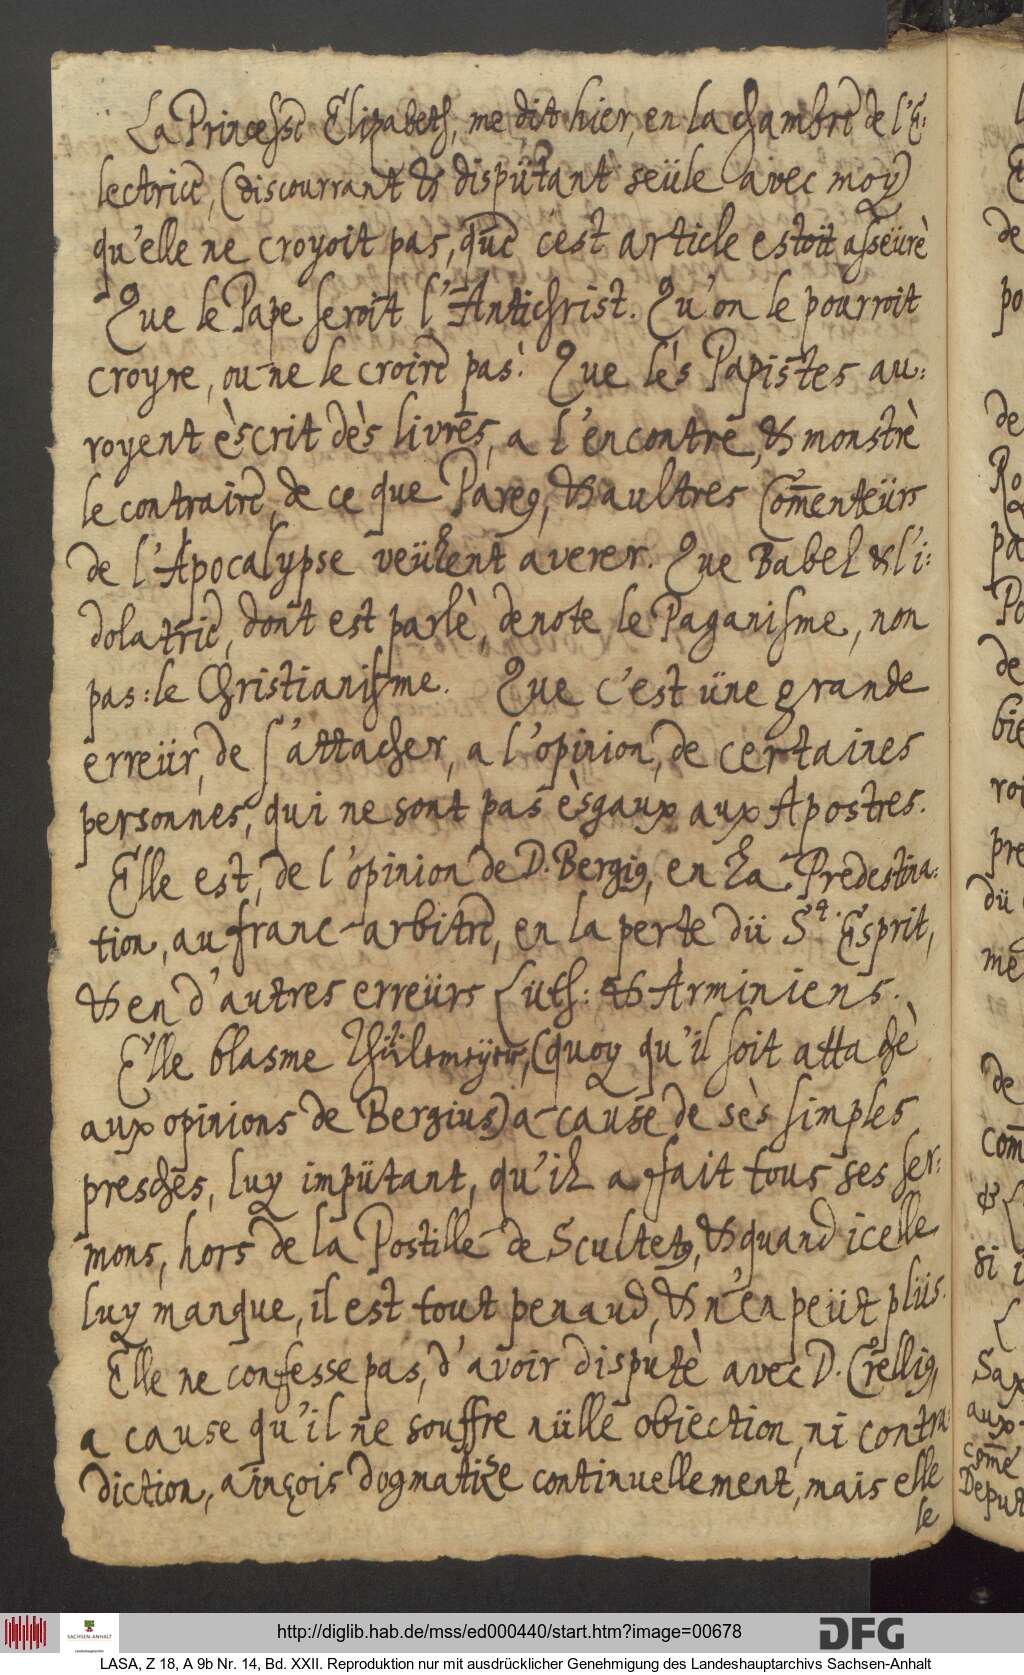 La Princesse Elizabeth, me dit hier, en la chambre de l'E:
lectrice, (discourrant & dispütant seüle avec moy)
qu'elle ne croyoit pas, que c'est article estoit asseürè
Que le Pape seroit l'Antichrist. Qu'on le pourroit
croyre, ou ne le croire pas. Que lés Papistes au:
royent èscrit dès livres, a l'encontre, & monstrè
le contraire, de ce que Pareus, & aultres Com̄enteürs
de l'Apocalypse veülent averer. Que Babel & l'i:
dolatrie, dont est parlè, denote le Paganisme, non
pas: le Christianisme. Que c'est üne grande
erreür, de s'attacher, a l'opinion, de certaines
personnes, qui ne sont pas èsgaux aux Apostres.
Elle est, de l'opinion de D. Bergius, en la Predestina:
tion, au franc-arbitre, en la perte dü St. Esprit,
& en d'autres erreürs Luth: & Arminiens.
Elle blasme (quoy qu'il soit attachè
aux opinions de Bergius) a cause de sès simples
presches, luy impütant, qu'il a fait tous ses ser:
mons, hors de la Postille de Scultetus, & quand icelle
luy manque, il est tout penaud, & n'en peüt plüs.
Elle ne confesse pas, d'avoir disputè avec D. Crellius,
a cause qu'il ne souffre nülle obiection, ni contra:
diction, ainçois dogmatize continuellement, mais elle
le
http://diglib.hab.de/mss/ed000440/start.htm?image=00678
DFG
SACHSEN-ANHALT
Landeshauptarchiv
LASA, Z 18, A 9b Nr. 14, Bd. XXII. Reproduktion nur mit ausdrücklicher Genehmigung des Landeshauptarchivs Sachsen-Anhalt